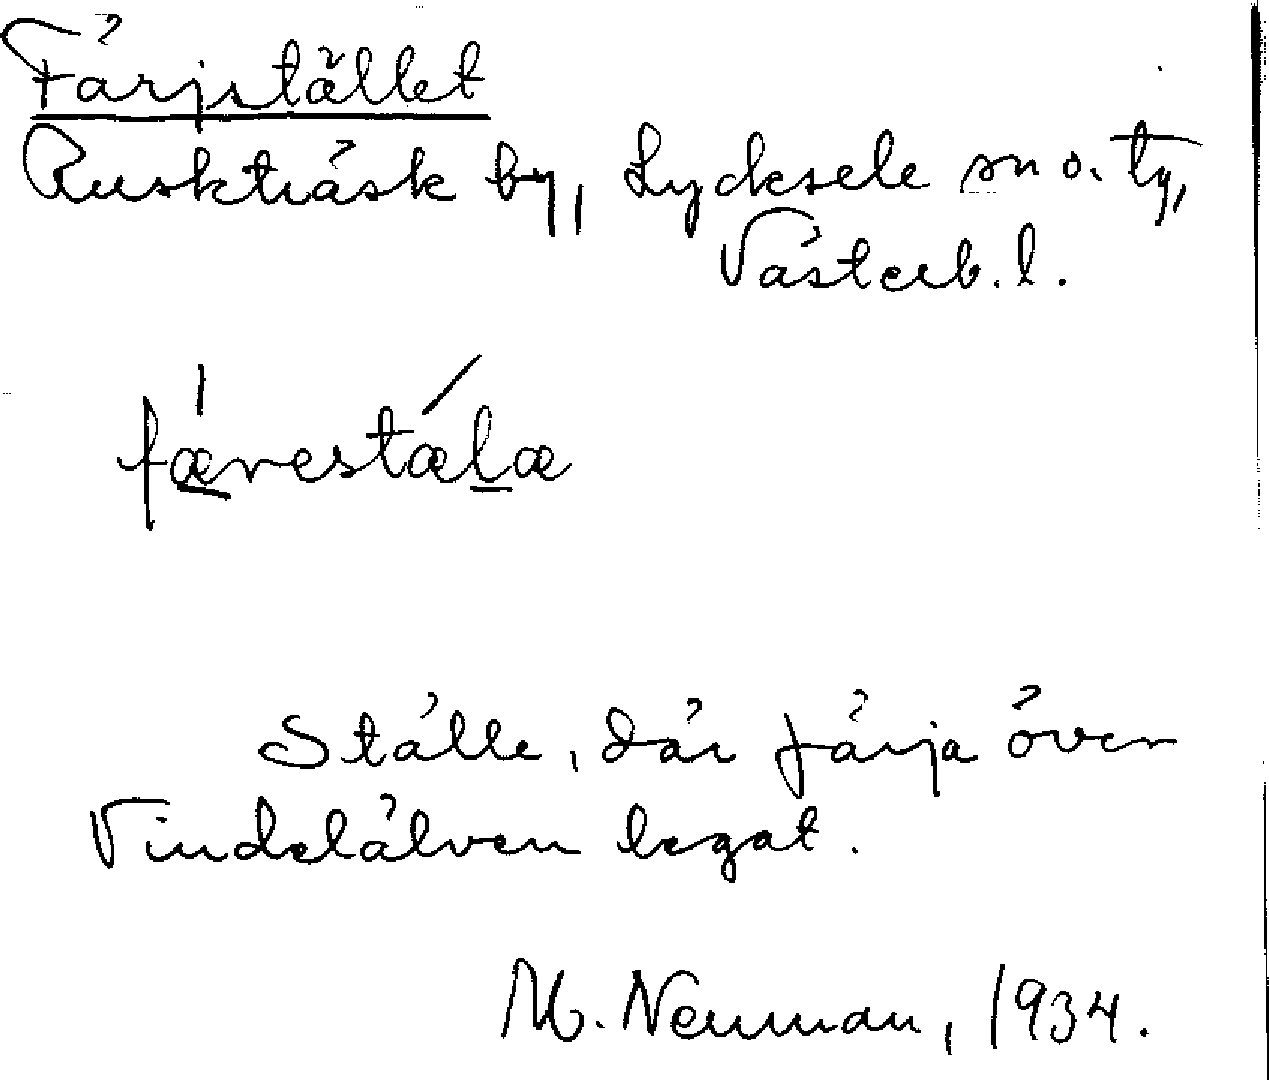 Färjstället
Ruskträsk by, Lycksele sn o. ty,
Västerb. l.
færestælæ
Ställe, där färja över
Vindelälven legat.
M. Neuman, 1934.